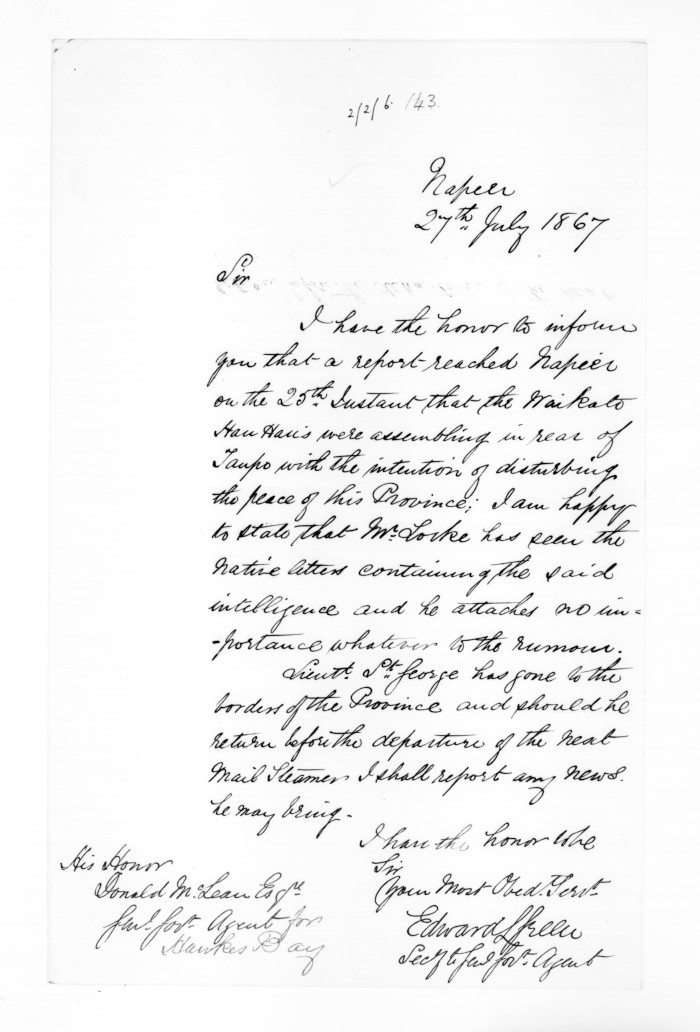 2/2/6. 143
Napier
27th July 1867
Sir
I have the honor to inform
you that a report reached Napier
on the 25th Instant that the Waikato
Hau Hau's were assembling in rear of
Taupo with the intention of disturbing
the peace of this Province; I am happy
to state that Mr. Locke has seen the
Native letters containing the said
intelligence and he attaches no im=
-portance whatever to the rumour.
Lieutt. St. George has gone to the
borders of the Province and should he
return before the departure of the next
Mail Steamer I shall report any news.
he may bring.
I have the honor to be
Sir
Your Most Obedt. Servt.
Edward Green
Secy to Genl Govt. Agent
His Honor
Donald McLean Esqre
Genl. Govt. Agent for
Hawkes Bay